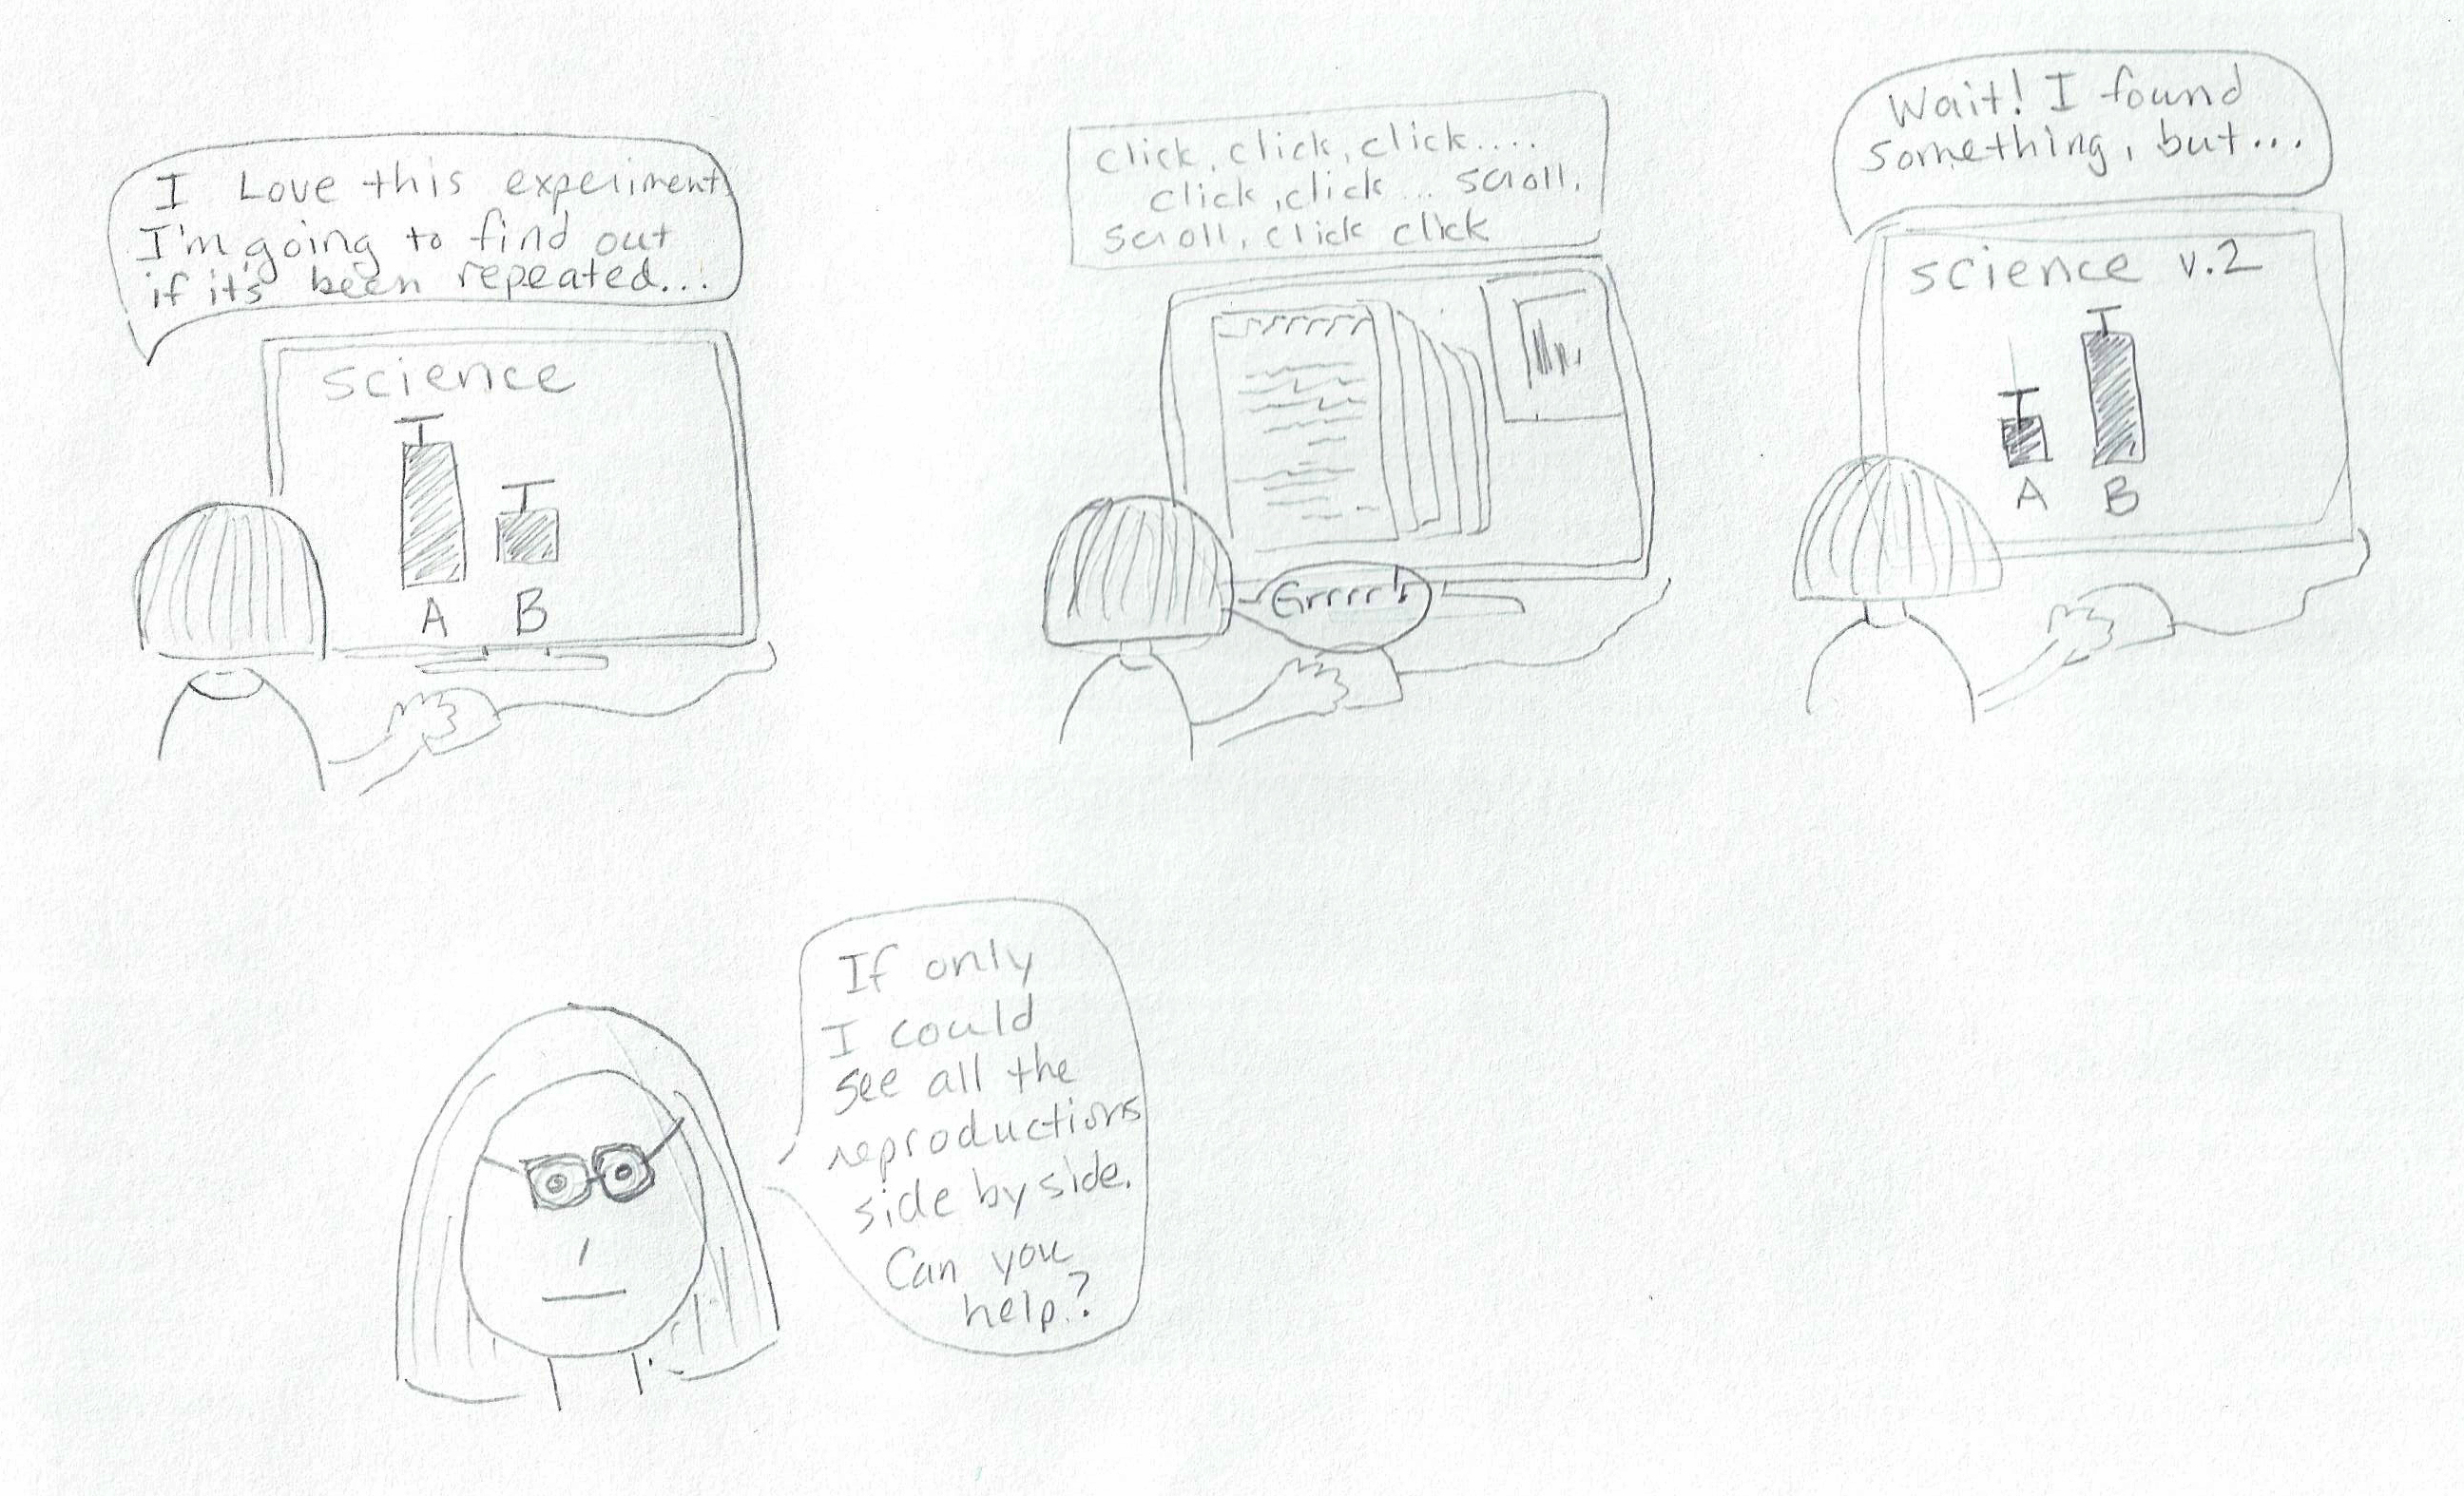 I Love this experiment
I'm going to find out
if it's been repeated...
science
A B
click, click, click....
click, click... scroll,
scroll, click click
Grrrr!
Wait! I found
something, but...
science v.2
A B
If only
I could
see all the
reproductions
side by side.
Can you
help?